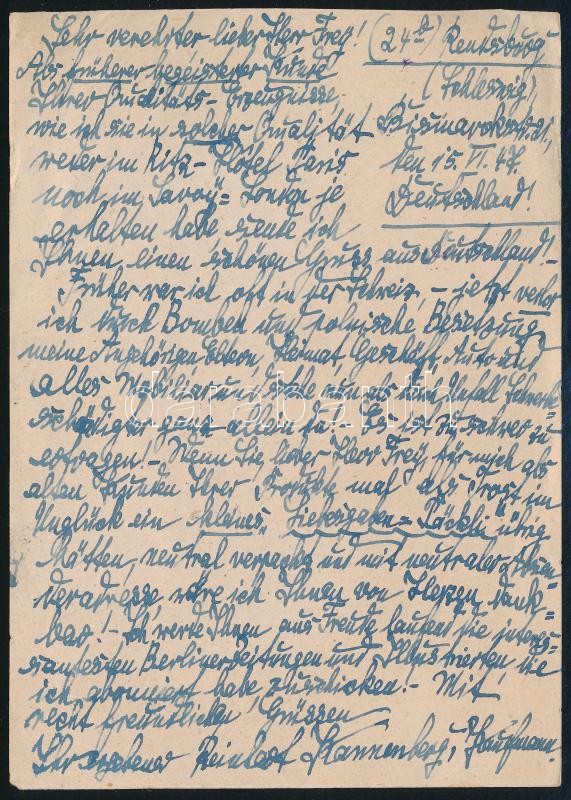 Sehr verehrter lieber Herr Frey! (24b) Rendsburg
Als früherer begeisterter Kunde (Schleswig)
Ihrer Qualitäts-Erzeugnisse,
wie ich sie in solcher Qualität Bismarckstr.
weder im Ritz-Hotel Paris den 15. VI. 47.
noch im Savoy-London je Deutschland!
erhalten habe, sende ich
Ihnen einen schönen Gruss aus Deutschland!
Früher war ich oft in der Schweiz, – jetzt verlor
ich durch Bomben und polnische Besetzung
meine Angehörigen Eltern, Heimat, Geschäft, Auto und
alles Mobiliar und stehe nun als
ganz allein da. Es ist schwer zu
ertragen! – Wenn Sie, lieber Herr Frey, für mich als
alten Kunden Ihrer Produkte mal als Trost im
Unglück ein kleines Liebesgaben-Päckli übrig
hätten, neutral verpackt und mit neutraler Absen-
deradresse, wäre ich Ihnen von Herzen dank-
bar! – Ich werde Ihnen aus Freude laufend die interes-
santesten Berlinerzeitungen und Illustrierten, die
ich abonniert habe zuschicken! – Mit
recht freundlichen Grüssen
Ihr ergebener Reinhold Kannenberg, Kaufmann.
darabanth